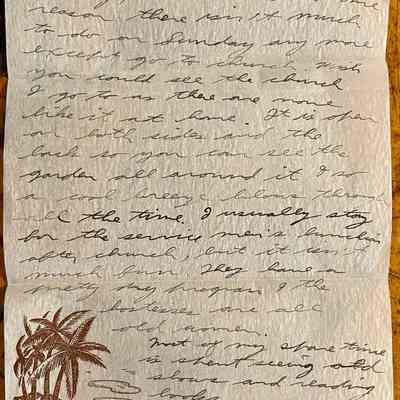 reason there isn't much
to do on Sunday any more
except go to church. Wish
you could see the church
I go to as there are none
like it at home. It is open
on both sides and the
back so you can see the
garden all around it & so
a cool breeze blows through
all the time. I usually stay
for the service men's luncheon
after church, but it isn't
much fun. They have a
pretty dry program & the
hostesses are all
old women.
Most of my spare time
is spent seeing old
shows and reading
books